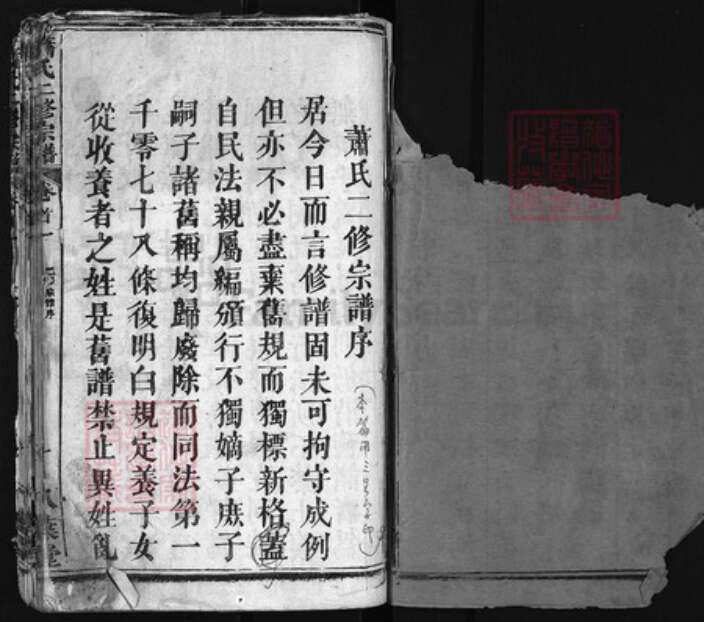 蕭氏二修宗譜序
居今日而言修譜固未可拘守成例
但亦不必盡棄舊規而獨標新格蓋
自民法親屬編頒行不獨嫡子庶子
嗣子諸舊稱均歸廢除而同法第一
千零七十八條復明白規定養子女
從收養者之姓是舊譜禁止異姓亂
蕭氏二修宗譜
卷首一
八葉堂